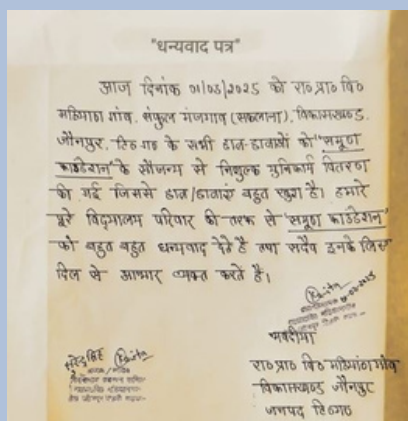 "धन्यवाद पत्र"
आज दिनांक 01/03/2025 को रा० प्रा० वि०
मठियाण गांव, संकुल मंजगांव (सकलाना), विकासखण्ड
जौनपुर, टि० ग० के सभी छात्र-छात्राओं को "समूण
फाउंडेशन" के सौजन्य से निशुल्क यूनिफार्म वितरण
की गई जिससे छात्र/छात्राएं बहुत खुश है। हमारे
पूरे विद्यालय परिवार की तरफ से "समूण फाउंडेशन"
को बहुत बहुत धन्यवाद देते है तथा सदैव उनके लिए
दिल से आभार व्यक्त करते है।
भवदीया
रा० प्रा० वि० मठियाण गांव
विकासखण्ड जौनपुर
जनपद टि० ग०